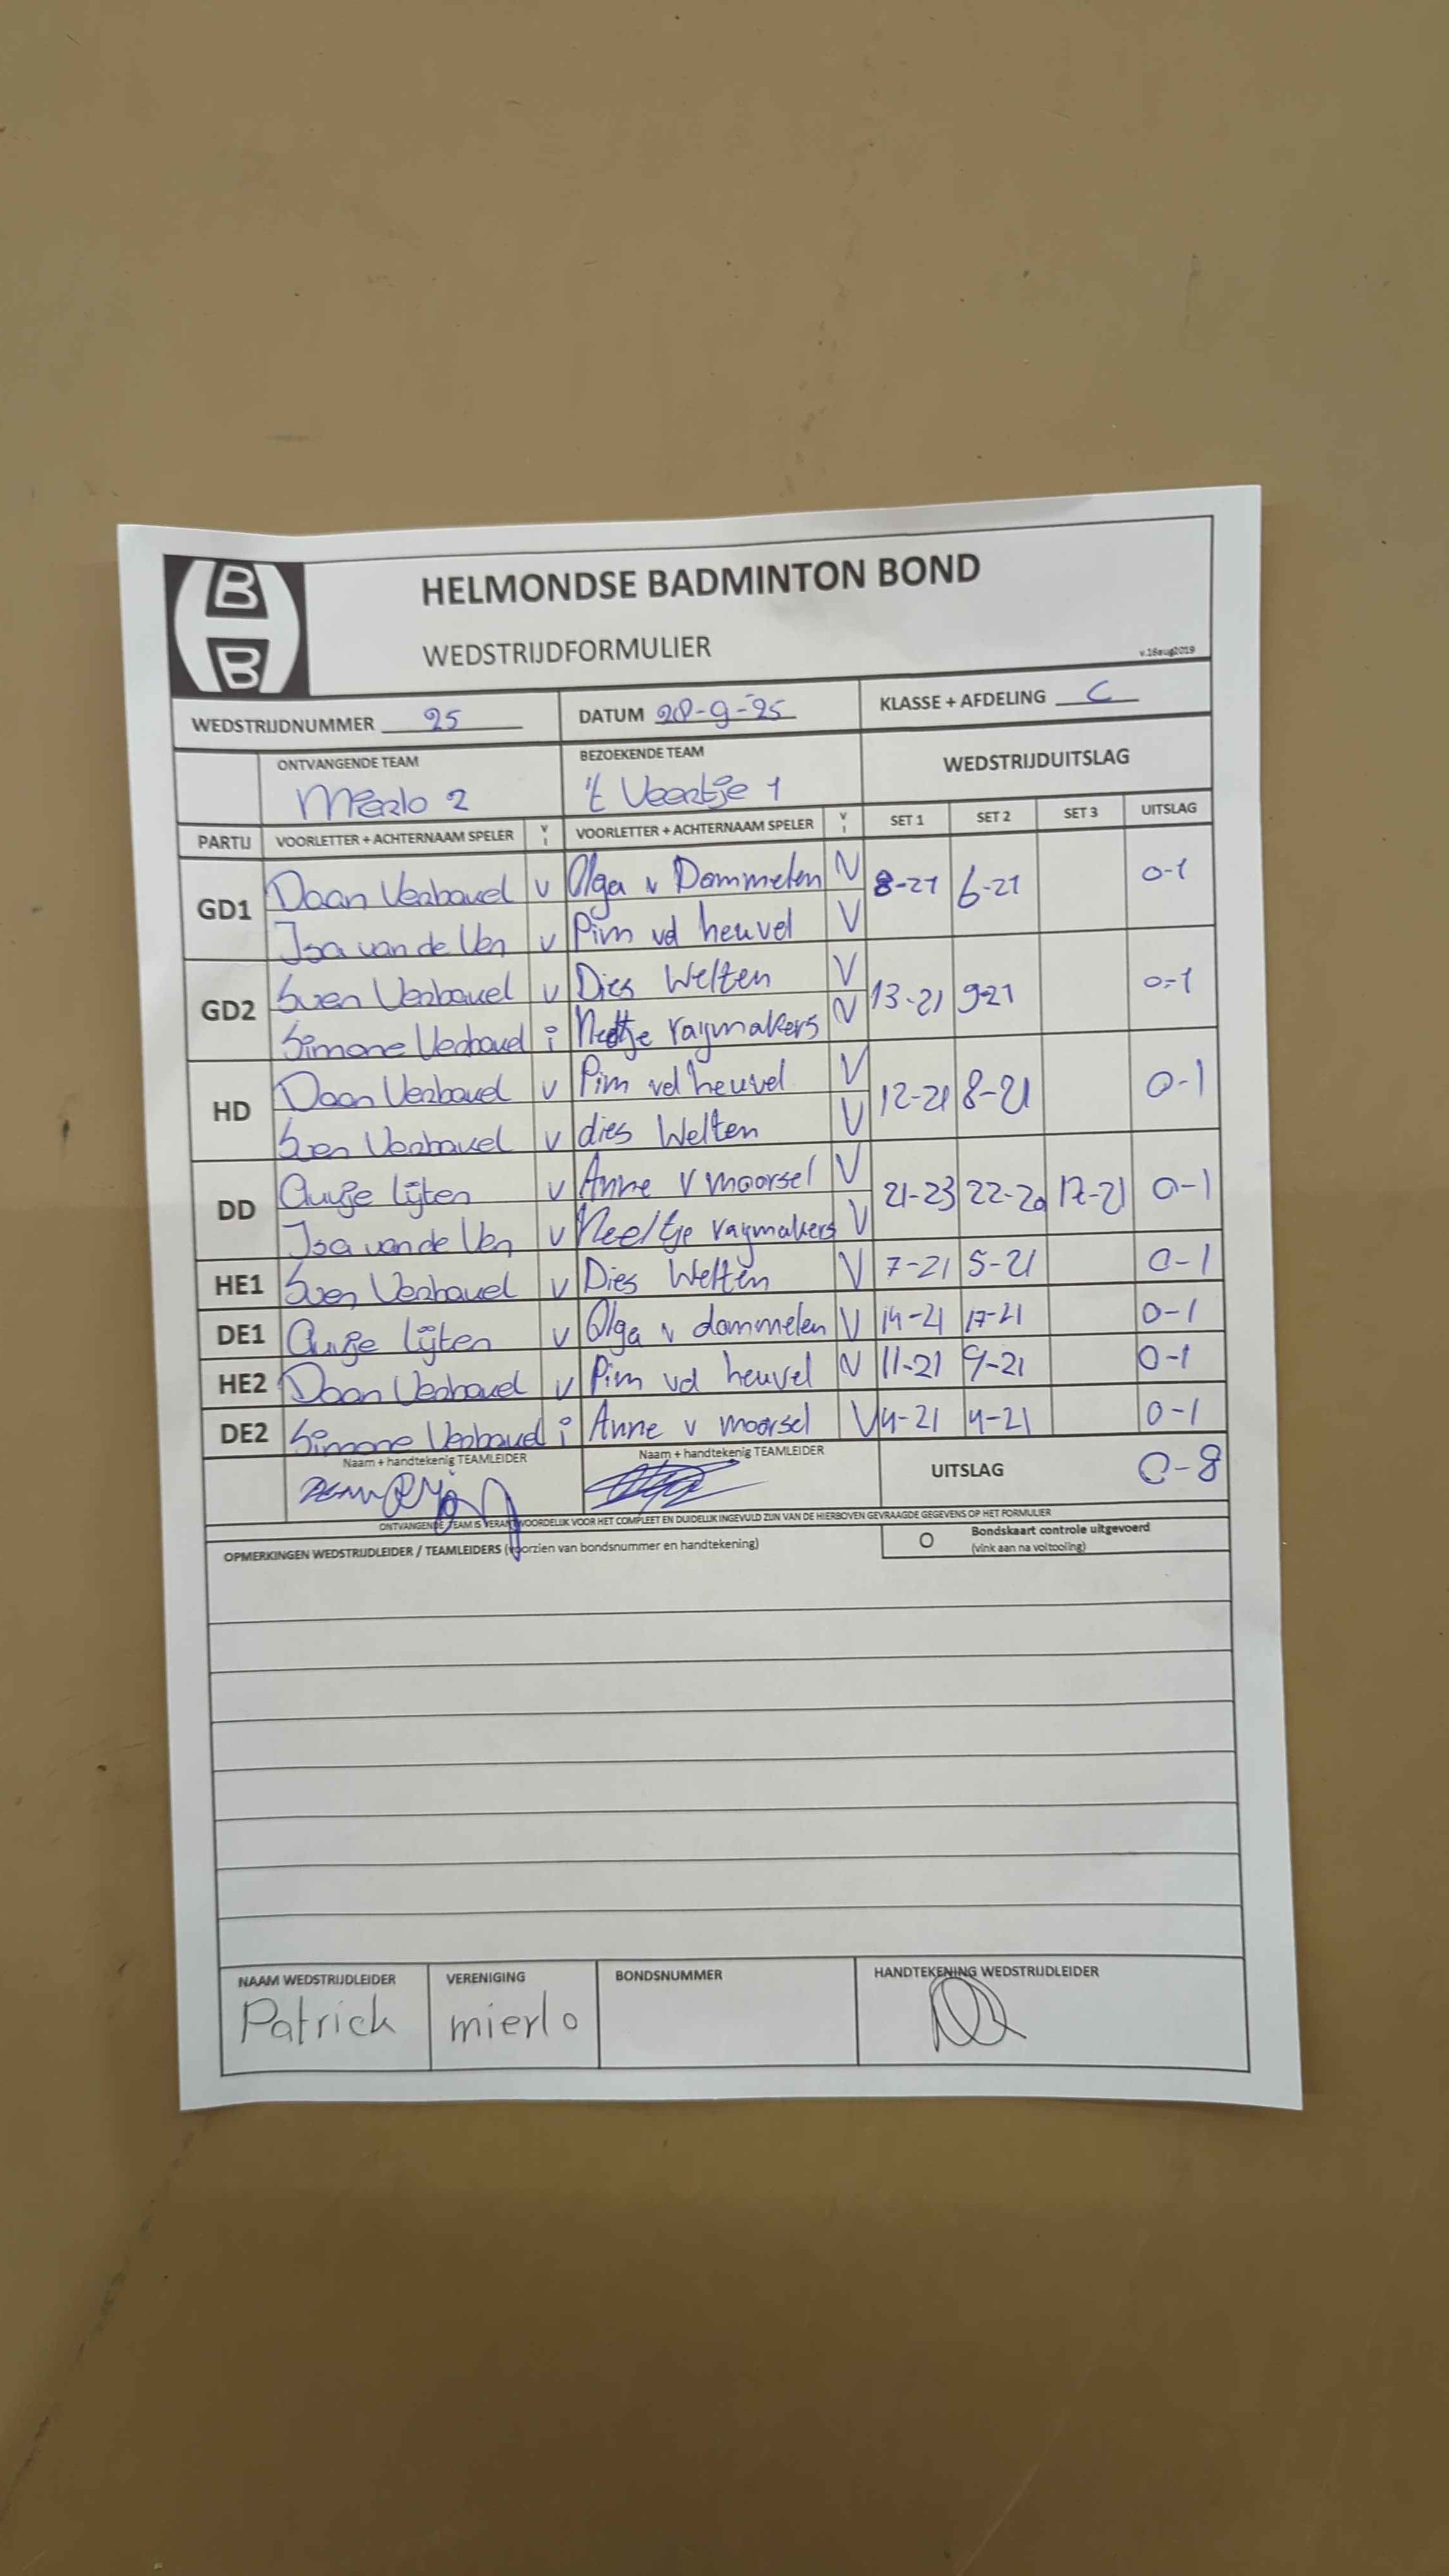 B
B
HELMONDSE BADMINTON BOND
WEDSTRIJDFORMULIER
v.16aug2019
WEDSTRIJDNUMMER 25 DATUM 28-9-25 KLASSE + AFDELING C
ONTVANGENDE TEAM BEZOEKENDE TEAM WEDSTRIJDUITSLAG
Mierlo 2 't Veertje 1
PARTIJ VOORLETTER + ACHTERNAAM SPELER V I VOORLETTER + ACHTERNAAM SPELER V I SET 1 SET 2 SET 3 UITSLAG
GD1 Daan Verbavel v Olga v Dommelen V 8-21 6-21 0-1
Isa van de Ven v Pim vd heuvel V
GD2 Sven Verbavel v Dies Welten V 13-21 9-21 0-1
Simone Verbavel i Neeltje raymakers V
HD Daan Verbavel v Pim vd heuvel V 12-21 8-21 0-1
Sven Verbavel v dies Welten V
DD lijten v Anne v moorsel V 21-23 22-20 17-21 0-1
Isa van de Ven v Neeltje raymakers V
HE1 Sven Verbavel v Dies Welten V 7-21 5-21 0-1
DE1 lijten v Olga v dommelen V 14-21 17-21 0-1
HE2 Daan Verbavel v Pim vd heuvel V 11-21 9-21 0-1
DE2 Simone Verbavel i Anne v moorsel V 4-21 4-21 0-1
Naam + handtekenig TEAMLEIDER Naam + handtekenig TEAMLEIDER UITSLAG 0-8
ONTVANGENDE TEAM IS VERANTWOORDELIJK VOOR HET COMPLEET EN DUIDELIJK INGEVULD ZIJN VAN DE HIERBOVEN GEVRAAGDE GEGEVENS OP HET FORMULIER
OPMERKINGEN WEDSTRIJDLEIDER / TEAMLEIDERS (voorzien van bondsnummer en handtekening) O Bondskaart controle uitgevoerd
(vink aan na voltooling)
NAAM WEDSTRIJDLEIDER VERENIGING BONDSNUMMER HANDTEKENING WEDSTRIJDLEIDER
Patrick mierlo